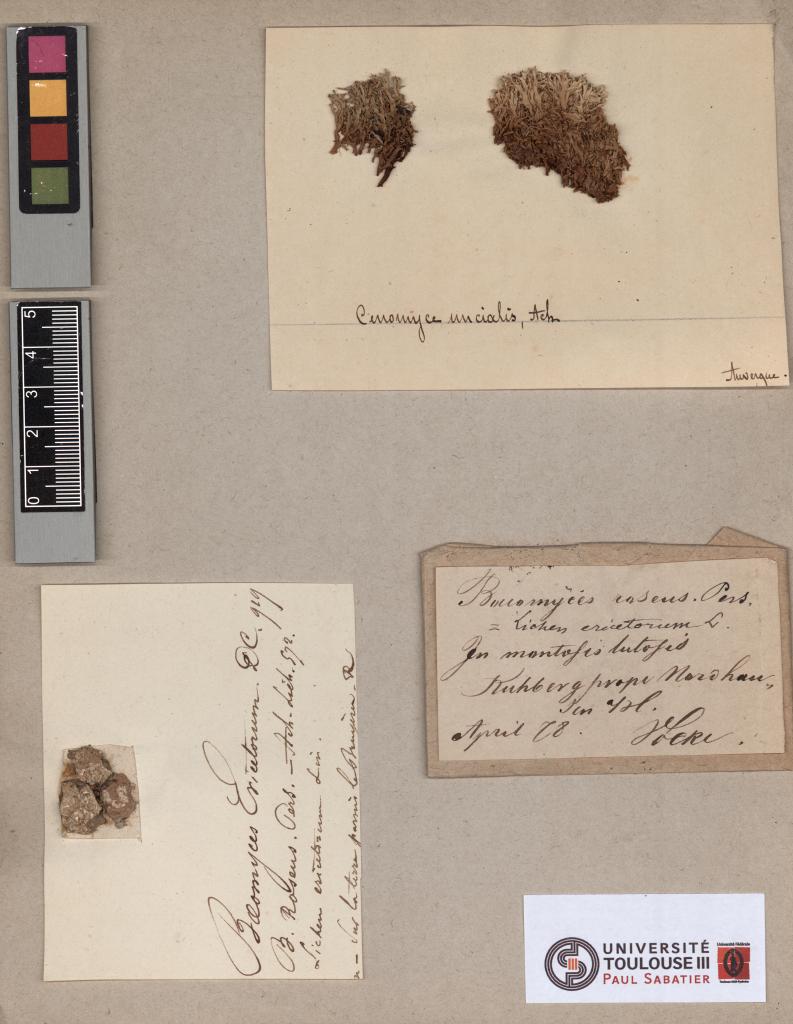 Cenomyce uncialis, Ach
Auvergne.
0 1 2 3 4 5
Bæomyces roseus. Pers.
= Lichen ericetorum L.
In montosis lutosis
Kuhberg prope Nordhau„
sen
April 78.
Bæomyces Ericetorum. DC. 919
B. Roseus. Pers. — Ach. Lich. 572.
Lichen ericetorum Lin.
— Sur la terre parmi la Bruyère.
UNIVERSITÉ
TOULOUSE III
PAUL SABATIER
Université Fédérale